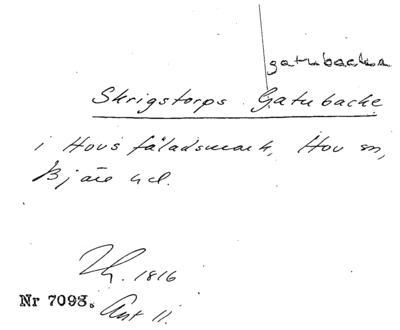 gatubacken
Skrigstorps Gatubacke
i Hovs fäladsmark, Hov sn,
Bjäre hd.
1816
Nr 7093. Ant 11.